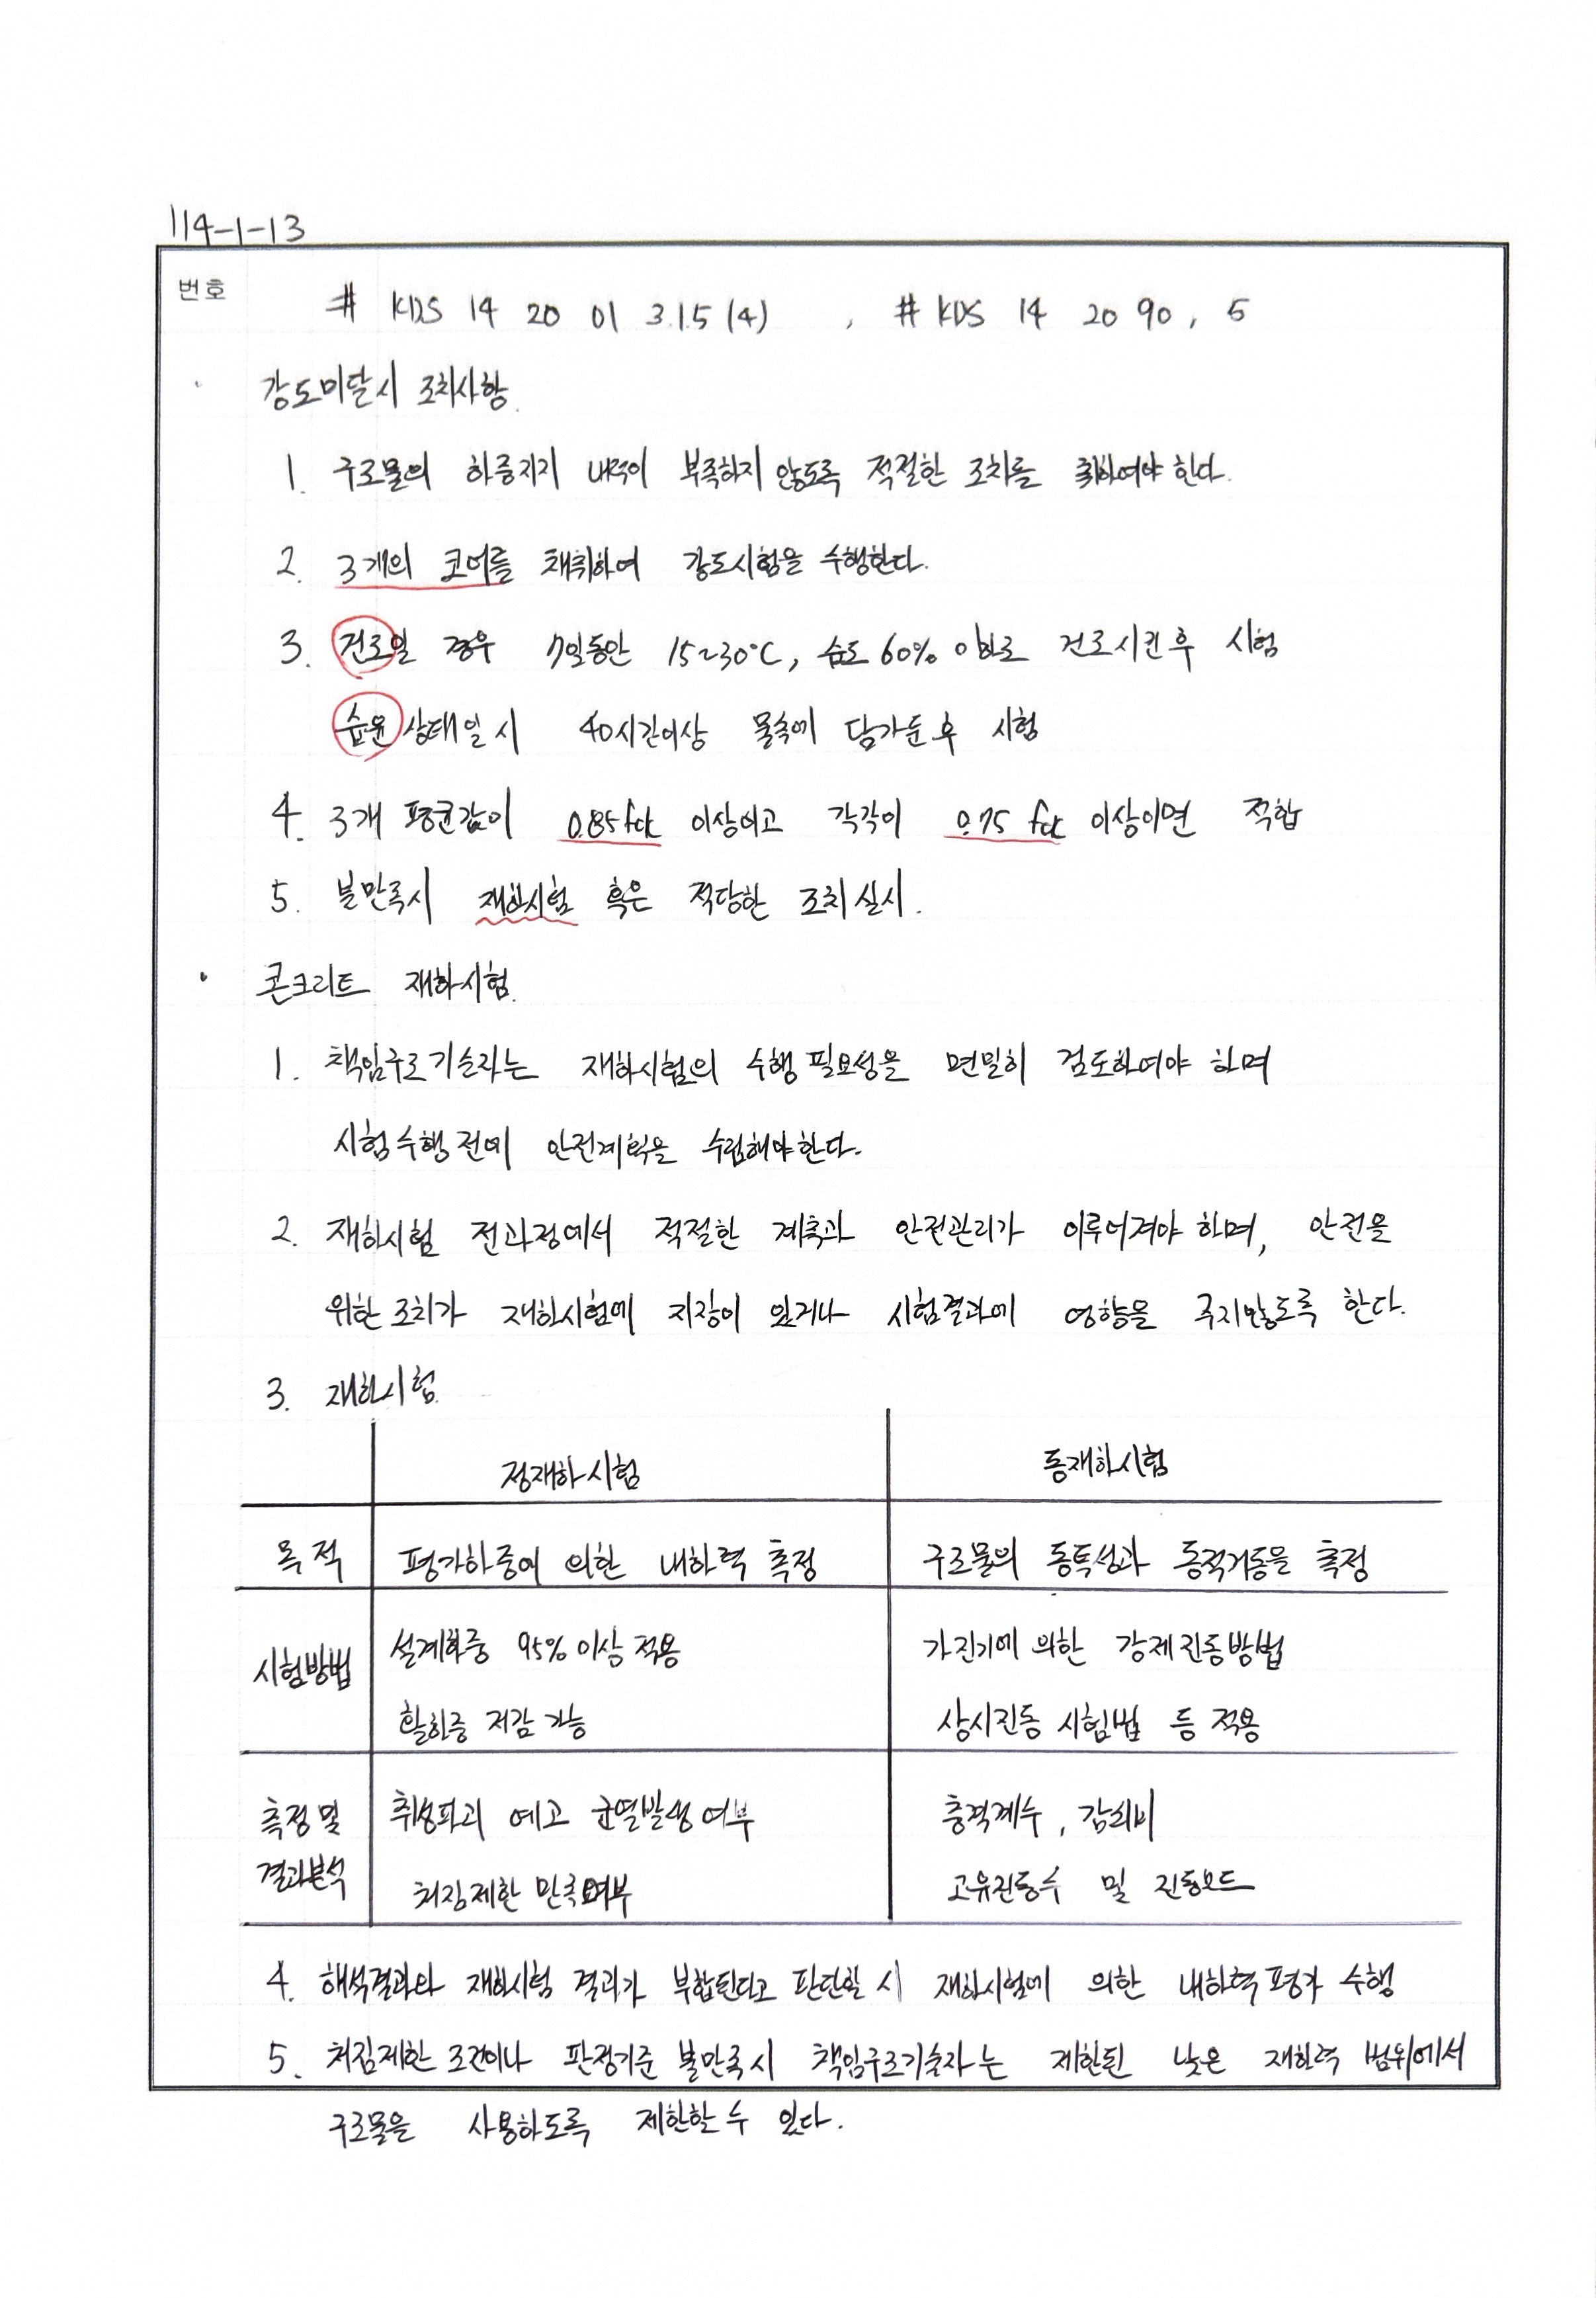 114-1-13
번호
# KDS 14 20 01 3.1.5 (4) , # KDS 14 20 90, 5
· 강도미달시 조치사항.
1. 구조물의 하중지지 내력이 부족하지 않도록 적절한 조치를 취하여야 한다.
2. 3개의 코어를 채취하여 강도시험을 수행한다.
3. 건조일 경우 7일동안 15~30℃, 습도 60% 이하로 건조시킨 후 시험
습윤 상태일 시 40시간이상 물속에 담가둔 후 시험
4. 3개 평균값이 0.85fck 이상이고 각각이 0.75 fck 이상이면 적합
5. 불만족시 재하시험 혹은 적당한 조치 실시.
· 콘크리트 재하시험.
1. 책임구조기술자는 재하시험의 수행 필요성을 면밀히 검토하여야 하며
시험 수행 전에 안전계획을 수립해야 한다.
2. 재하시험 전과정에서 적절한 계측과 안전관리가 이루어져야 하며, 안전을
위한 조치가 재하시험에 지장이 있거나 시험결과에 영향을 주지않도록 한다.
3. 재하시험.
정재하시험 동재하시험
목적 평가하중에 의한 내하력 측정 구조물의 동특성과 동적거동을 측정
시험방법 설계하중 95% 이상 적용 가진기에 의한 강제진동방법
활하중 저감 가능 상시진동 시험법 등 적용
측정 및 취성파괴 예고 균열발생 여부 충격계수, 감쇠비
결과분석 처짐제한 만족여부 고유진동수 및 진동모드
4. 해석결과와 재하시험 결과가 부합된다고 판단될 시 재하시험에 의한 내하력 평가 수행
5. 처짐제한 조건이나 판정기준 불만족시 책임구조기술자는 제한된 낮은 재하력 범위에서
구조물을 사용하도록 제한할 수 있다.